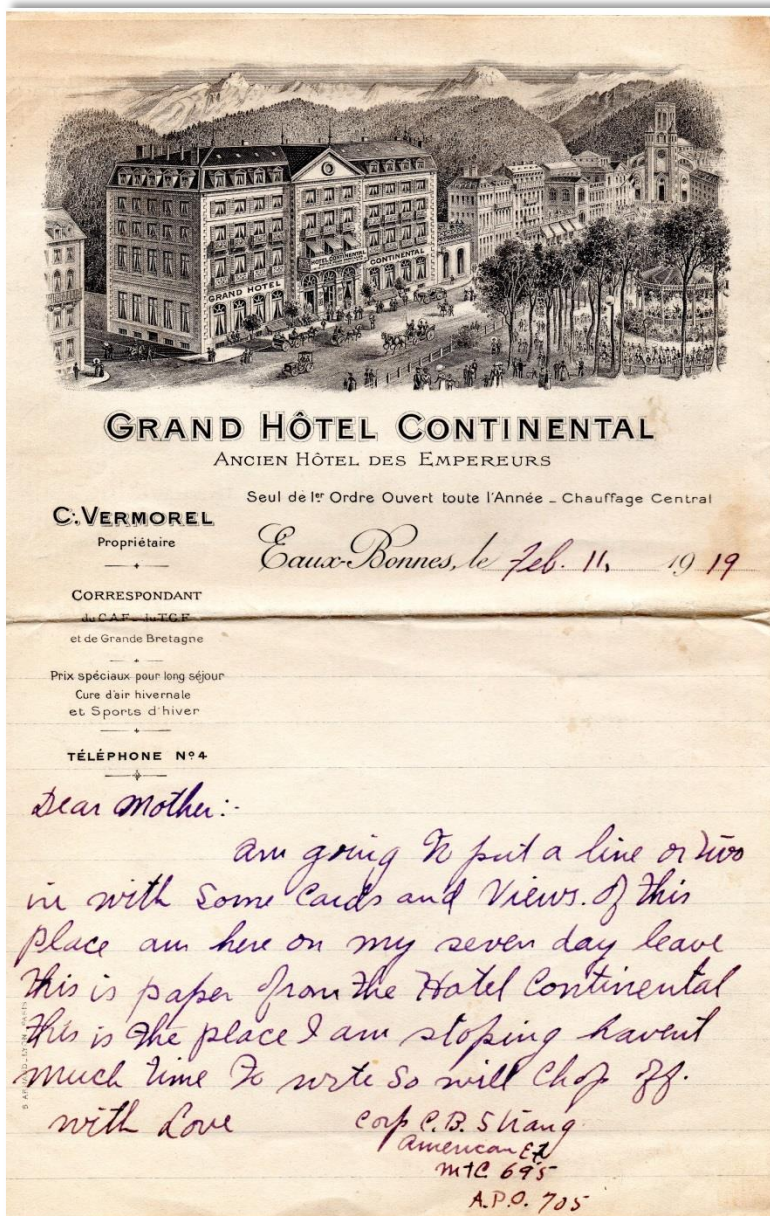 HOTEL CONTINENTAL
GRAND HOTEL
CONTINENTAL
GRAND HÔTEL CONTINENTAL
ANCIEN HÔTEL DES EMPEREURS
Seul de 1er Ordre Ouvert toute l'Année - Chauffage Central
C. VERMOREL
Propriétaire
Eaux-Bonnes, le Feb. 11, 1919
CORRESPONDANT
du C.A.F. du T.C.F.
et de Grande Bretagne
Prix spéciaux pour long séjour
Cure d'air hivernale
et Sports d'hiver
TÉLÉPHONE Nº 4
Dear Mother:-
am going to put a line or two
in with Some Cards and Views. Of this
Place am here on my seven day leave
this is paper from the Hotel Continental
this is the place I am stoping havent
much time to write So will Chop off.
with Love
Corp C.B. Strang
American
MTC 695
A.P.O. 705